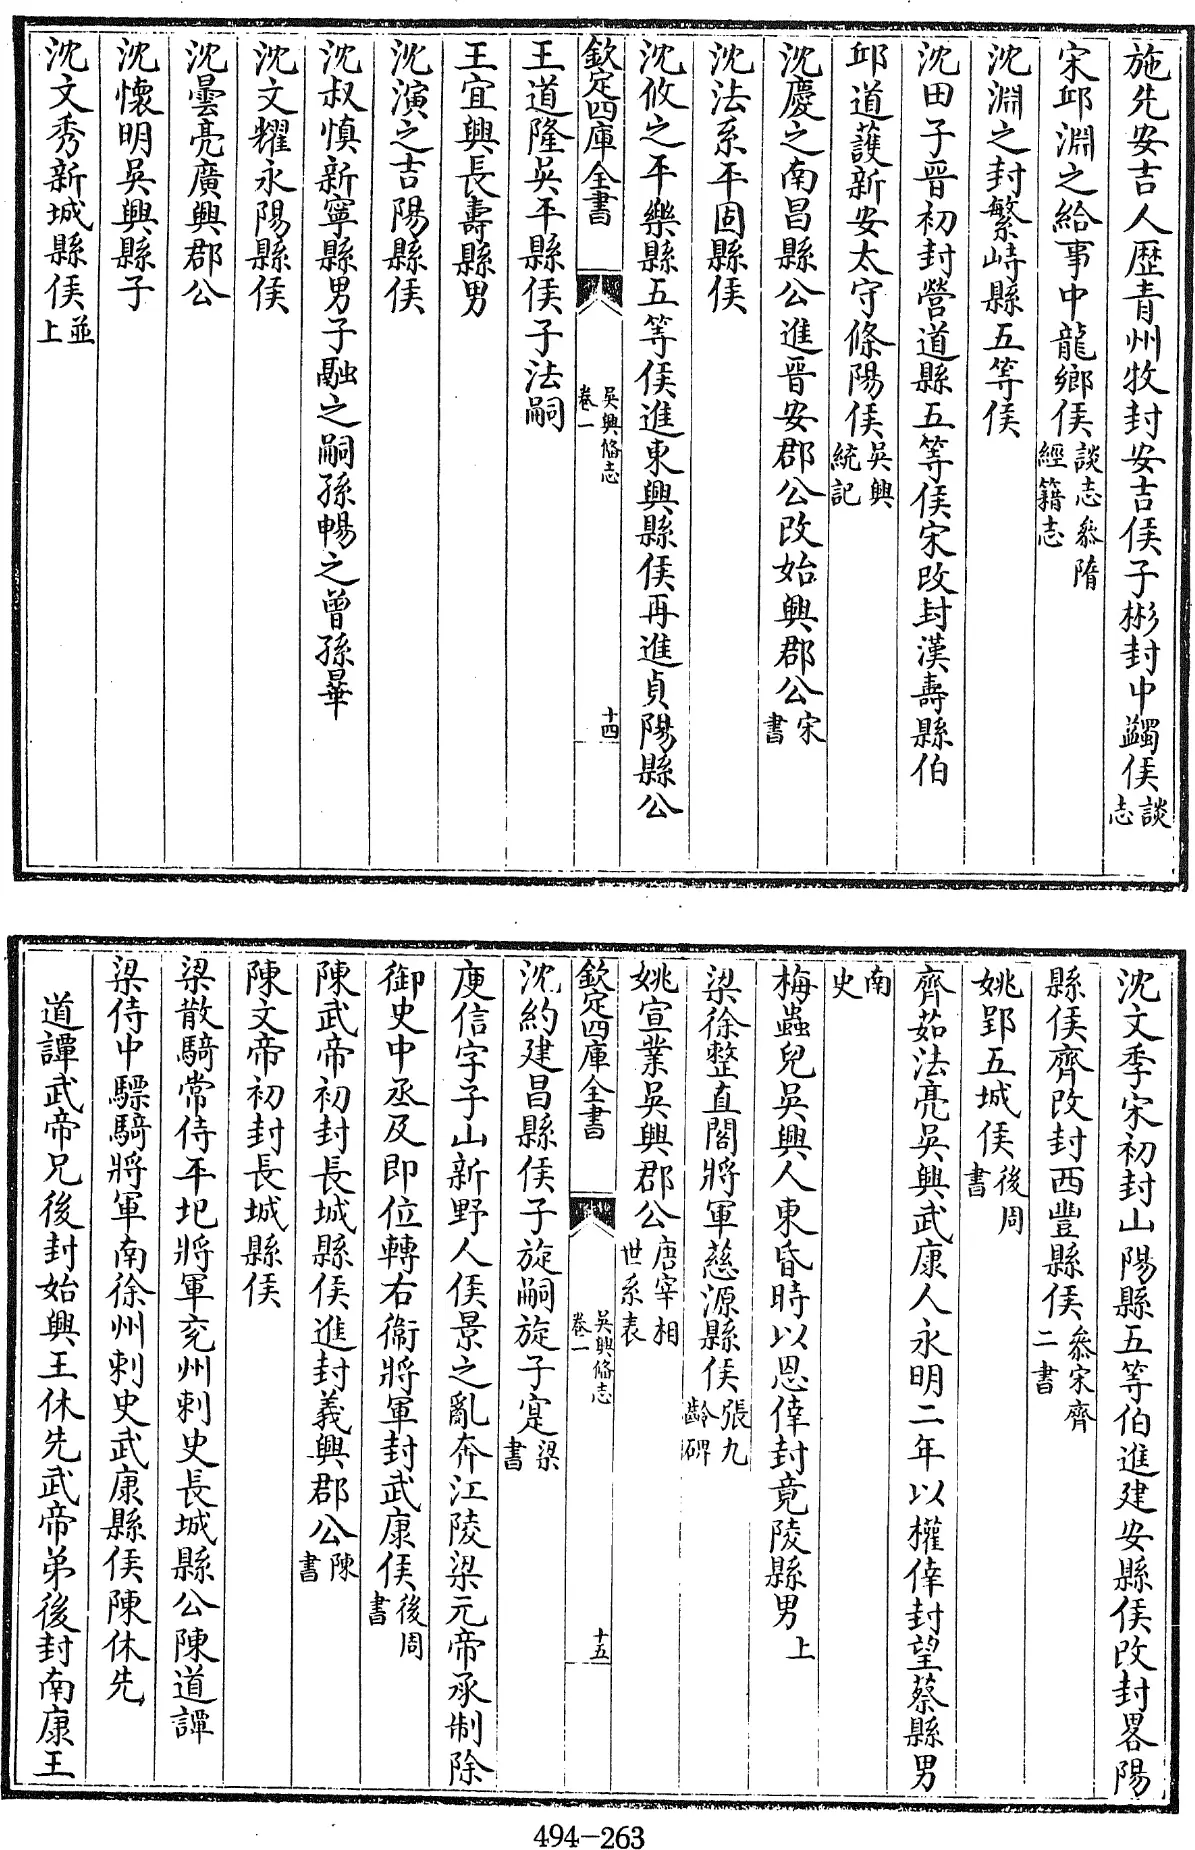 施先安吉人歴青州牧封安吉侯子彬封中蠲侯談志
宋邱淵之給事中龍鄉侯談志叅隋經籍志
沈淵之封繁峙縣五等侯
沈田子晉初封營道縣五等侯宋改封漢壽縣伯
邱道護新安太守條陽侯吳興統記
沈慶之南昌縣公進晉安郡公改始興郡公宋書
沈法系平固縣侯
沈攸之平樂縣五等侯進東興縣侯再進貞陽縣公
欽定四庫全書
吳興備志
卷一
十四
王道隆吳平縣侯子法嗣
王宜興長壽縣男
沈演之吉陽縣侯
沈叔慎新寧縣男子融之嗣孫暢之曾孫曅
沈文耀永陽縣侯
沈曇亮廣興郡公
沈懷明吳興縣子
沈文秀新城縣侯並上
沈文季宋初封山陽縣五等伯進建安縣侯改封畧陽
縣侯齊改封西豐縣侯叅宋齊二書
姚郢五城侯後周書
齊茹法亮吳興武康人永明二年以權倖封望蔡縣男
南史
梅蟲兒吳興人東昏時以恩倖封竟陵縣男上
梁徐整直閣將軍慈源縣侯張九齡碑
姚宣業吳興郡公唐宰相世系表
欽定四庫全書
吳興備志
卷一
十五
沈約建昌縣侯子旋嗣旋子寔梁書
庾信字子山新野人侯景之亂奔江陵梁元帝承制除
御史中丞及即位轉右衞將軍封武康侯後周書
陳武帝初封長城縣侯進封義興郡公陳書
陳文帝初封長城縣侯
梁散騎常侍平圯將軍兖州刺史長城縣公陳道譚
梁侍中驃騎將軍南徐州刺史武康縣侯陳休先
道譚武帝兄後封始興王休先武帝弟後封南康王
494-263